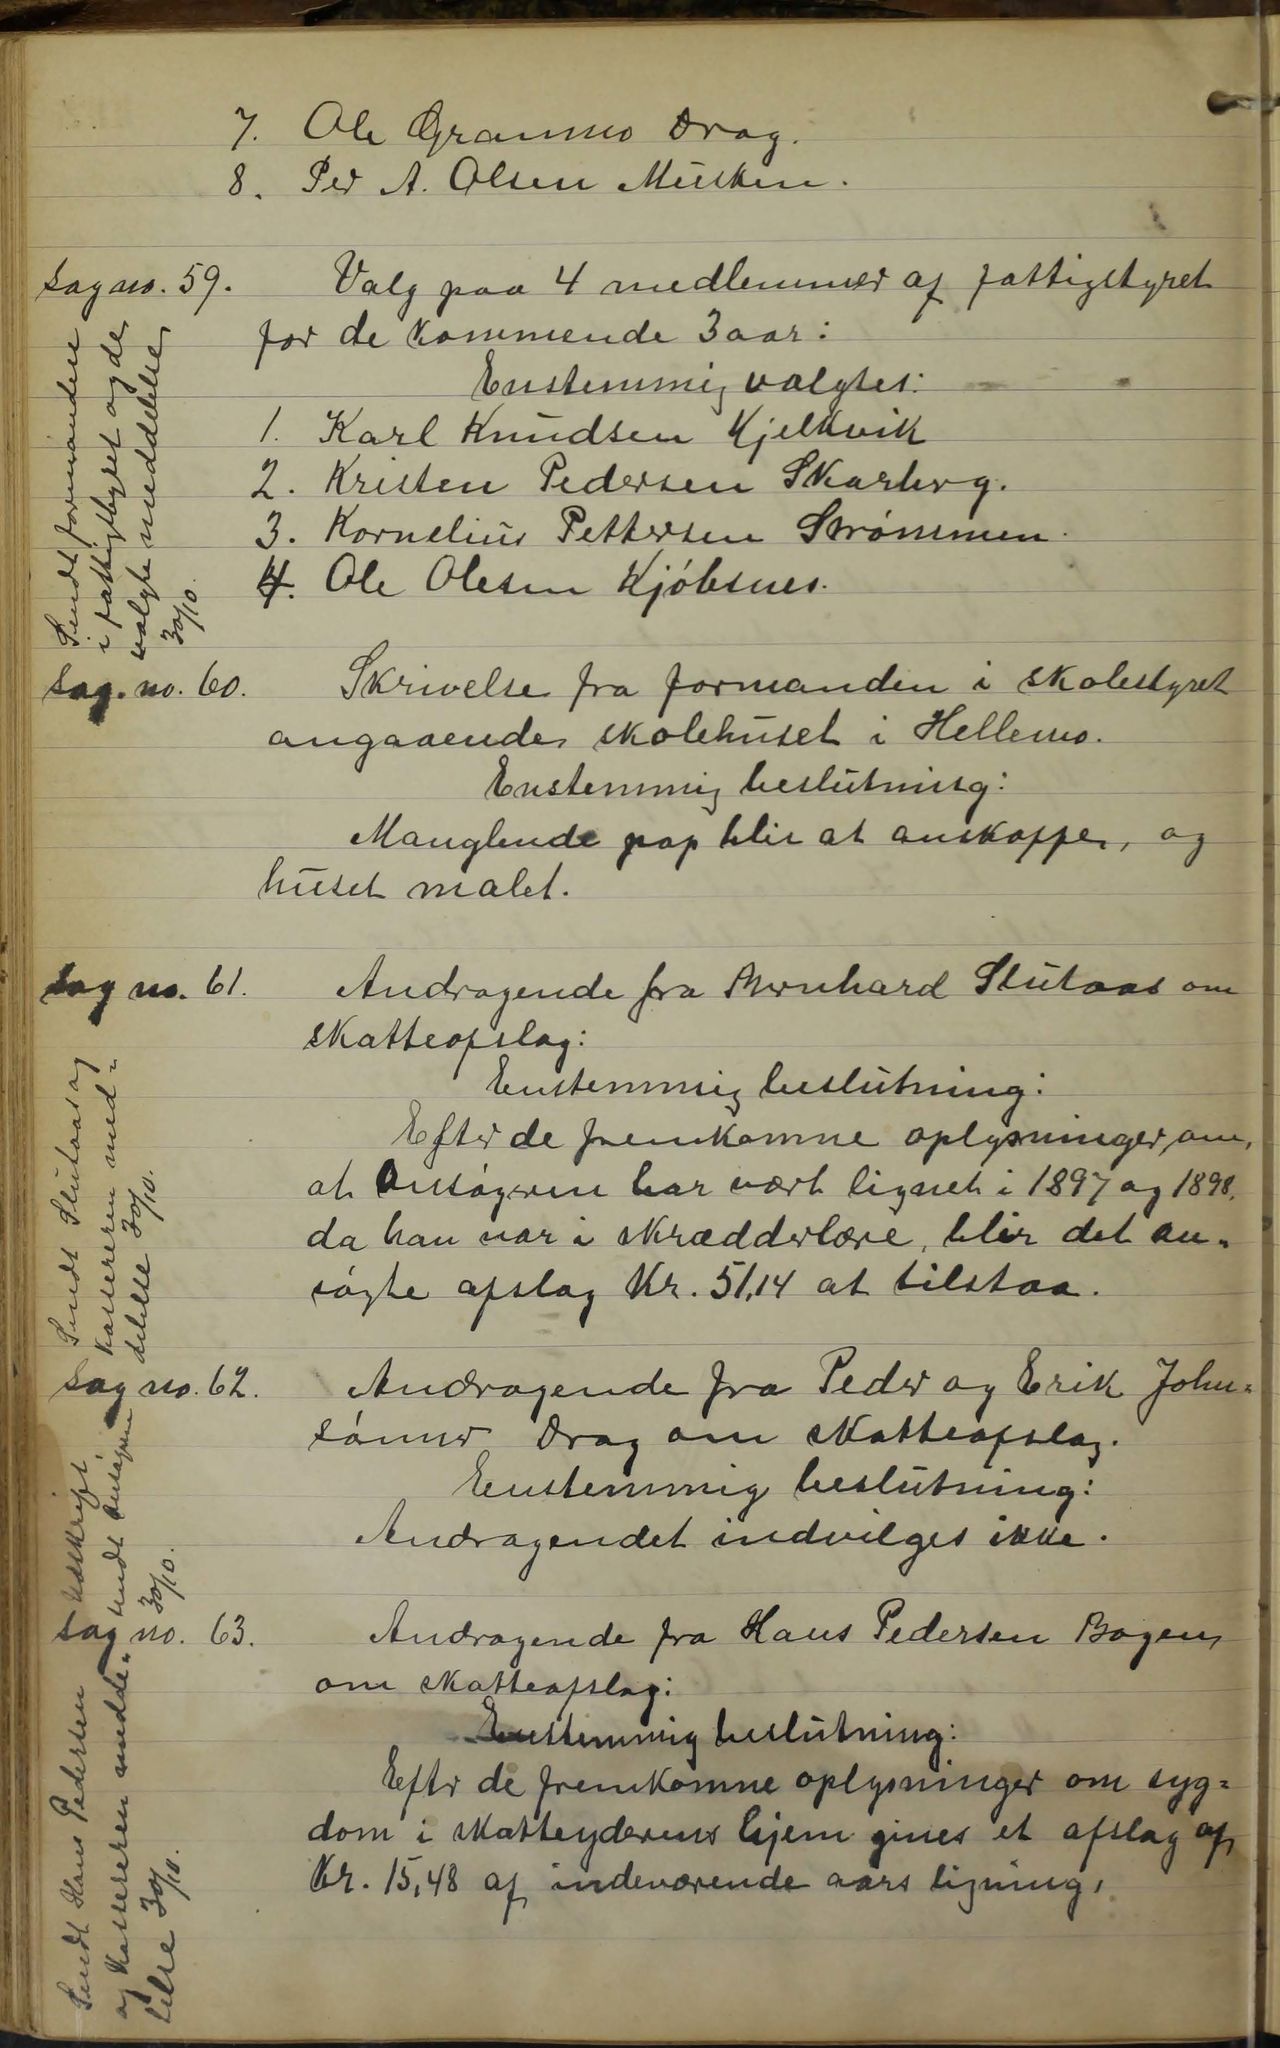 7. Ole Grannes Drag.
8. Per A. Olsen Musken.
Sag no. 59.
Valg paa 4 medlemmer af fattigstyret
for de kommende 3 aar:
Enstemmig valgtes:
1. Karl Knudsen Kjelkvik
2. Kristen Pedersen Skarberg.
3. Kornelius Pettersen Strømmen.
4. Ole Olesen Kjøbsnes.
Sendt formanden
i fattigstyret og de
valgte meddelelse
30/10.
Sag. no. 60.
Skrivelse fra formanden i skolestyret
angaaende skolehuset i Hellemo.
Enstemmig beslutning:
Manglende pap blir at anskaffe, og
huset malet.
Sag no. 61.
Andragende fra Bernhard Slutaas om
skatteafslag:
Enstemmig beslutning:
Efter de fremkomne oplysninger, om,
at Ansøgeren har vært lignet i 1897 og 1898,
da han var i skrædderlære, blir det an-
søgte afslag Kr. 51,14 at tilstaa.
Sendt Slutaas og
kassereren med-
delelse 30/10.
Sag no. 62.
Andragende fra Peder og Erik John-
sønner Drag om skatteafslag.
Enstemmig beslutning:
Andragendet indvilges ikke.
Udskrift
sendt Ansøgerne
30/10.
Sag no. 63.
Andragende fra Hans Pedersen Bogen
om skatteafslag:
Enstemmig beslutning:
Efter de fremkomne oplysninger om syg-
dom i skatteyderens hjem gives et afslag af
Kr. 15,48 af indeværende aars ligning,
Sendt Hans Pedersen
og Kassereren medde-
lelse 30/10.